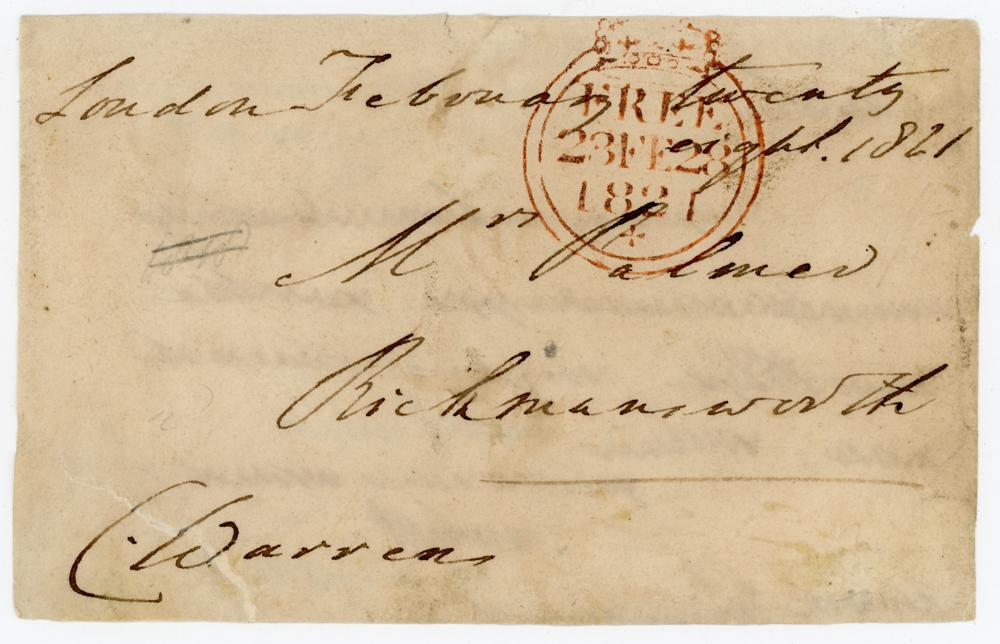 London February twenty
eight. 1821
FREE
28FE28
1821
Mrs Palmer
Rickmansworth
C. Warren